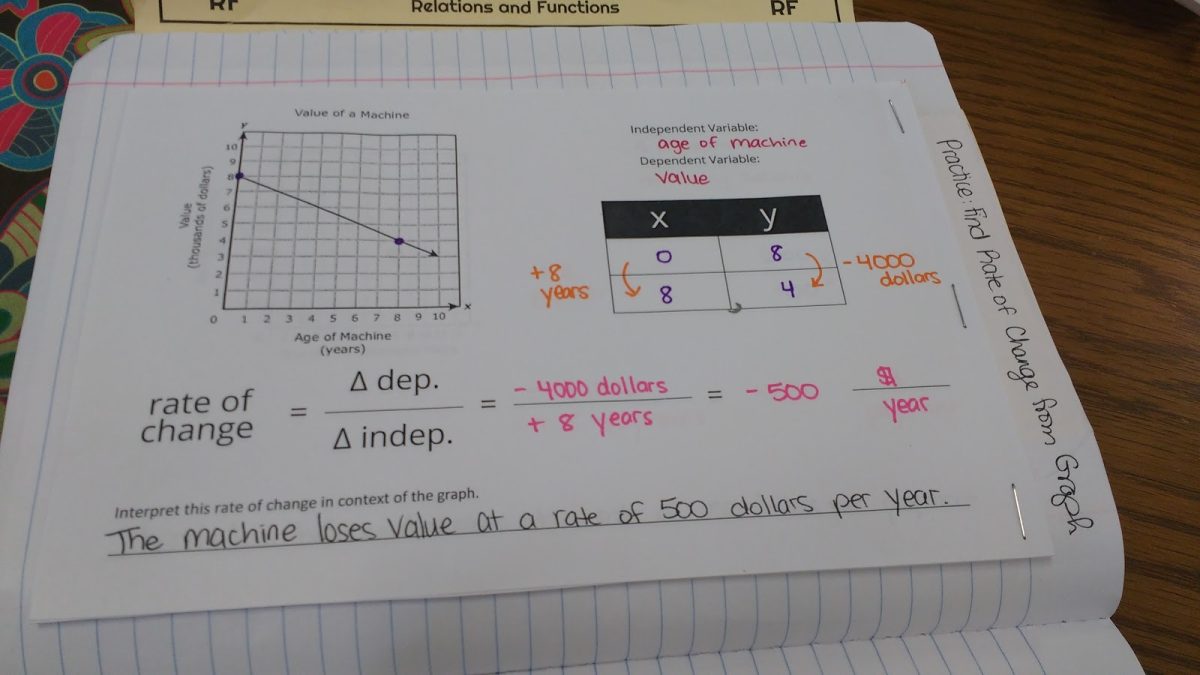 RF Relations and Functions RF
Value of a Machine
y
10
9
8
7
6
5
4
3
2
1
0 1 2 3 4 5 6 7 8 9 10
x
Value
(thousands of dollars)
Age of Machine
(years)
Independent Variable:
age of machine
Dependent Variable:
value
x y
0 8
8 4
+8
years
-4000
dollars
rate of
change
=
Δ dep.
Δ indep.
=
- 4000 dollars
+ 8 years
= - 500
$
year
Interpret this rate of change in context of the graph.
The machine loses value at a rate of 500 dollars per year.
Practice: Find Rate of Change from Graph